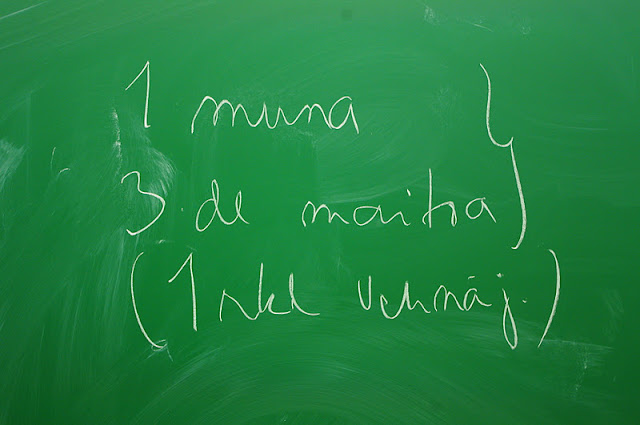 1 muna }
3. dl maitoa
(1 rkl vehnäj.)